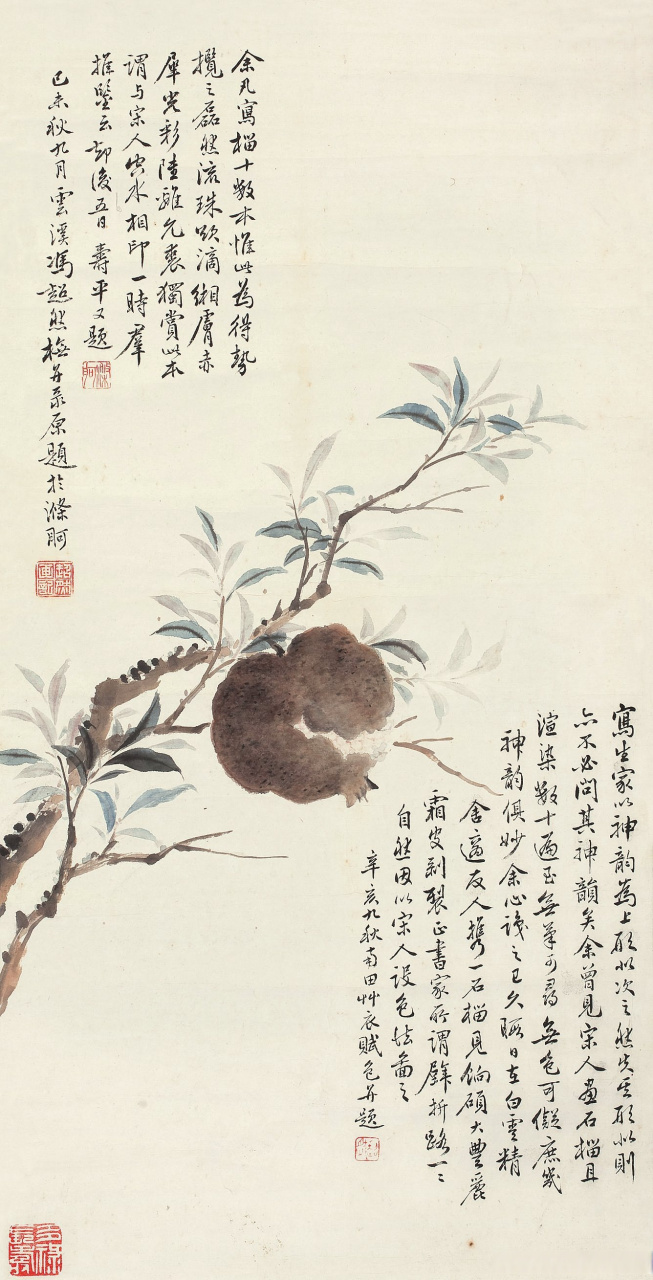 余凡寫榴十數本惟此為得勢
攬之磊然流珠欲滴緗膚赤
犀光彩陸離允裘獨賞此本
謂与宋人水相印一時羣
推鑒云却後五日壽平又題
己未秋九月雲溪馮超然橅并录原題於滌舸
寫生家以神韵為上形似次之然失其形似則
亦不必問其神韻矣余曾見宋人畫石榴且
渲染數十遍至無筆可尋無色可儗庶幾
神韵俱妙余心識之已久暇日在白雲精
舍適友人攜一石榴見餉碩大豐麗
霜皮剥裂正書家所謂壁拆路一一
自然因以宋人設色法圖之
辛亥九秋南田艸衣賦色并題